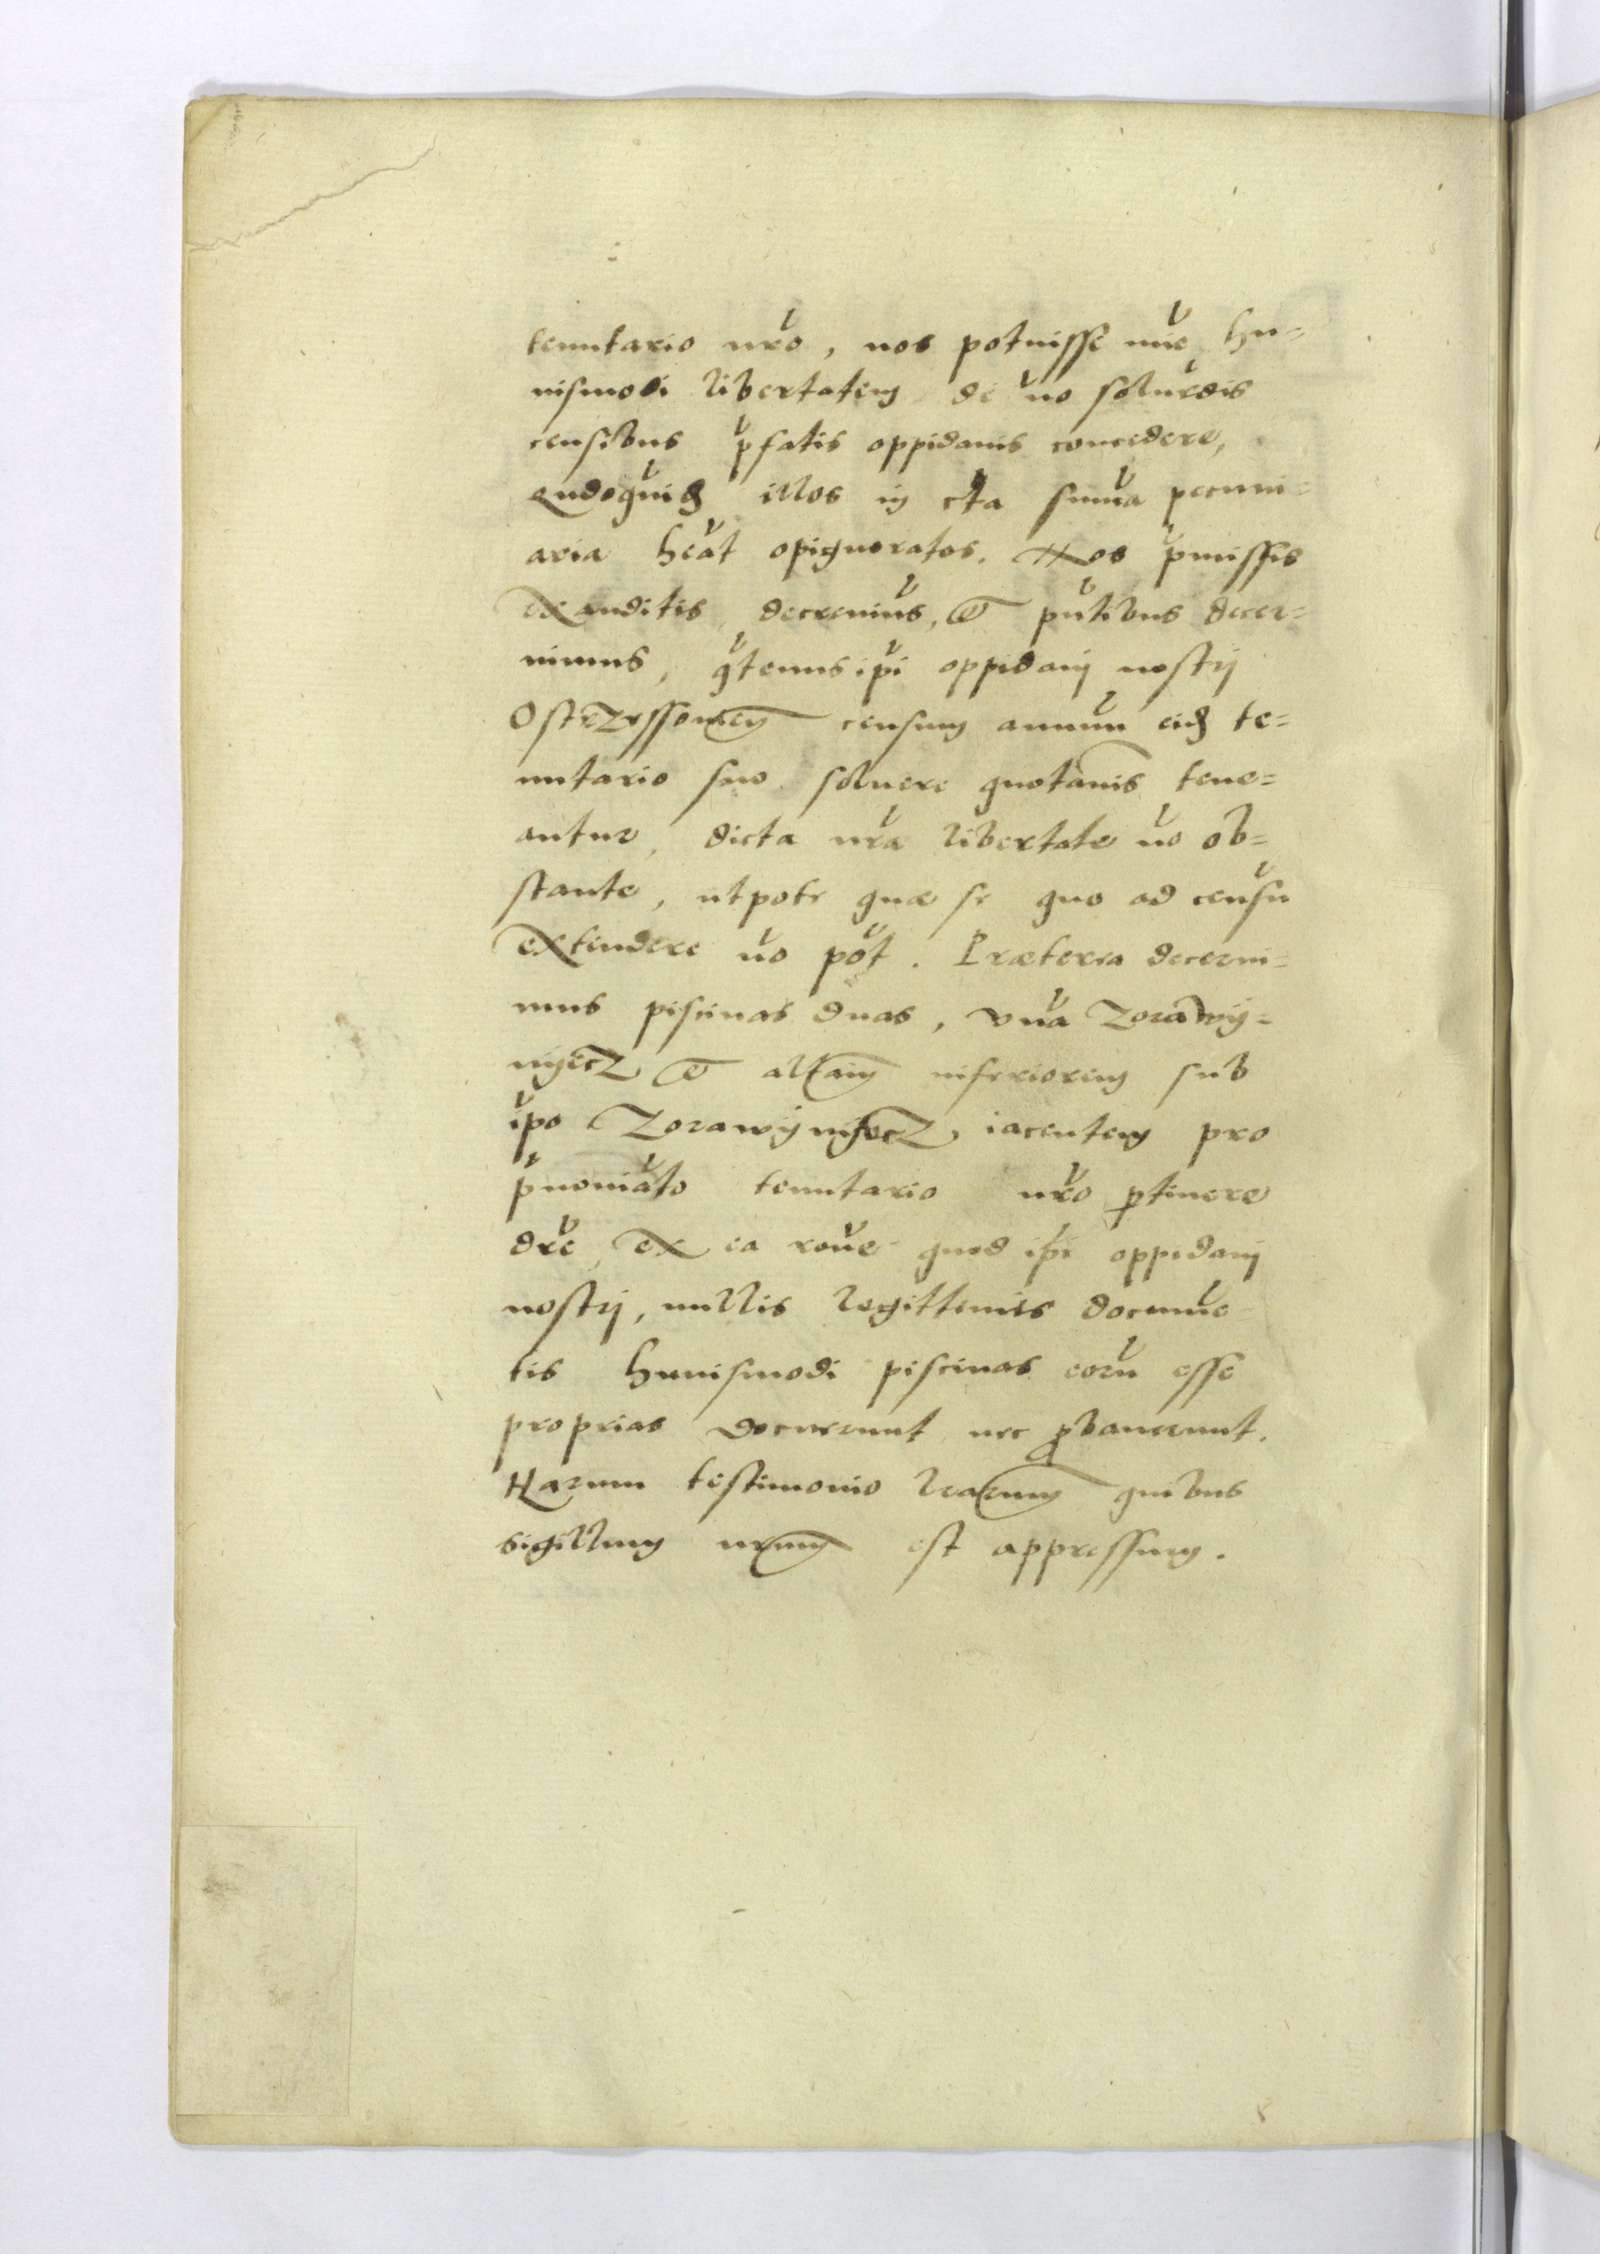 tenutario nro, nos potuisse mie hu=
iusmodi libertatem de no soluedis
censibus pfatis oppidanis concedere,
qndoquidem illos in cta suma pecuni=
aria heat opignoratos. Nos pmissis
exauditis decreuius, & pntibus decer=
nimus, qtenus ipi oppidani nostri
Ostrzessouien censum annuu eidem te=
nutario suo soluere quotannis tene=
antur, dicta nra libertate no ob=
stante, utpote quæ se quo ad censu
extendere no pot. Præterea decerni=
mus piscinas duas, vna Zorawÿ=
nÿecz & altam inferiorem sub
ipo Zorawÿnÿecz, iacentem pro
pnoniato tenutario nro ptinere
dre, ex ea rone quod ipi oppidani
nostri, nullis legittimis docume
tis huiusmodi piscinas eoru esse
proprias docuerunt nec pbauerunt.
Harum testimonio lrarum quibus
sigillum nrum est appressum.